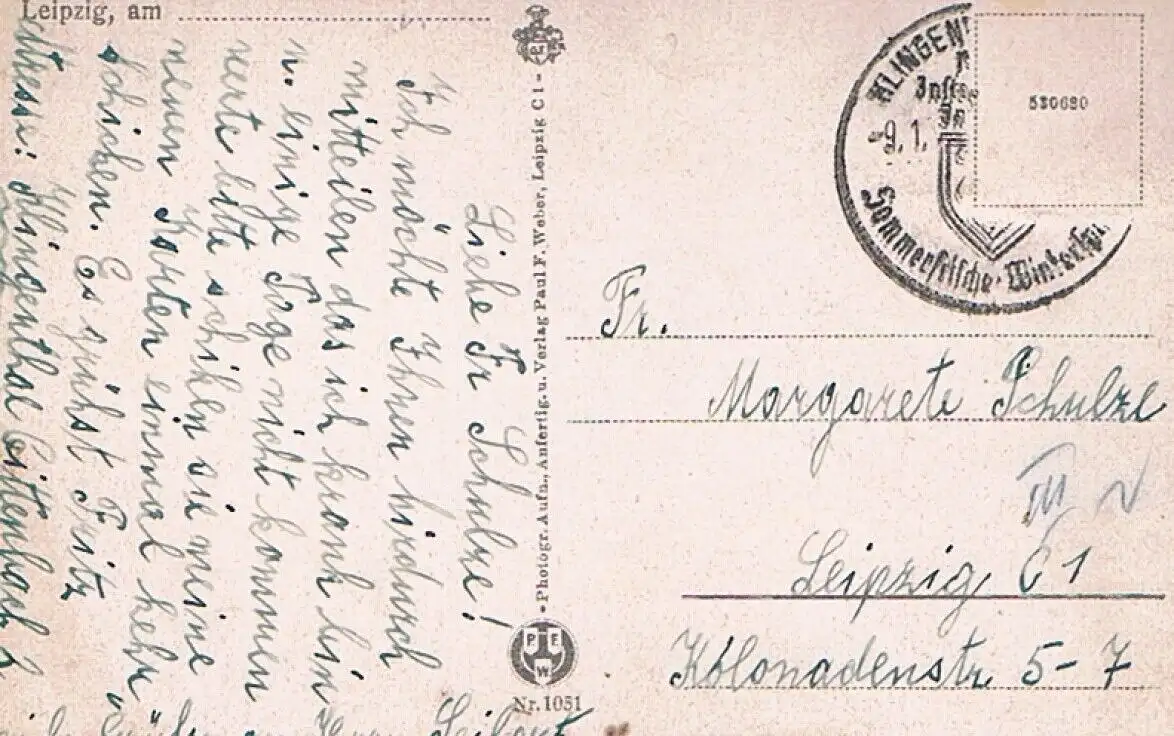 Leipzig, am
Liebe Fr Schulze!
Ich möchte Ihnen hirdurch
mitteilen das ich krank bin
u. einige Tage nicht kommen
werte bitte schiken sie meine
nemen Karten einmal
schicken. Es grüßt Fritz
Klingenthal
Grüßen Herrn
- Photogr. Aufn., Anfertig. u. Verlag Paul F. Weber, Leipzig C 1 -
PFW
Nr. 1051
KLINGEN
-9.1.
Sommerfrische · Winterspo
530680
Fr.
Margarete Schulze
III
Leipzig C 1
Kolonadenstr 5-7